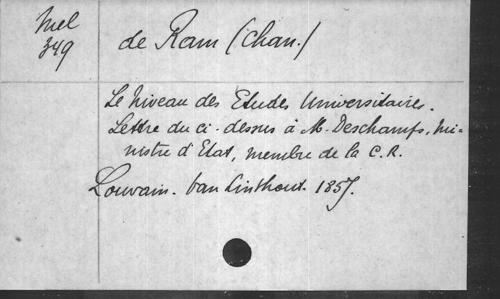 Mel
349
de Ram (Chan.)
Le Niveau des Etudes Universitaires.
Lettre du ci-dessus à M. Deschamps, Mi-
nistre d'Etat, membre de la C.R.
Louvain. Van Linthout. 1857.